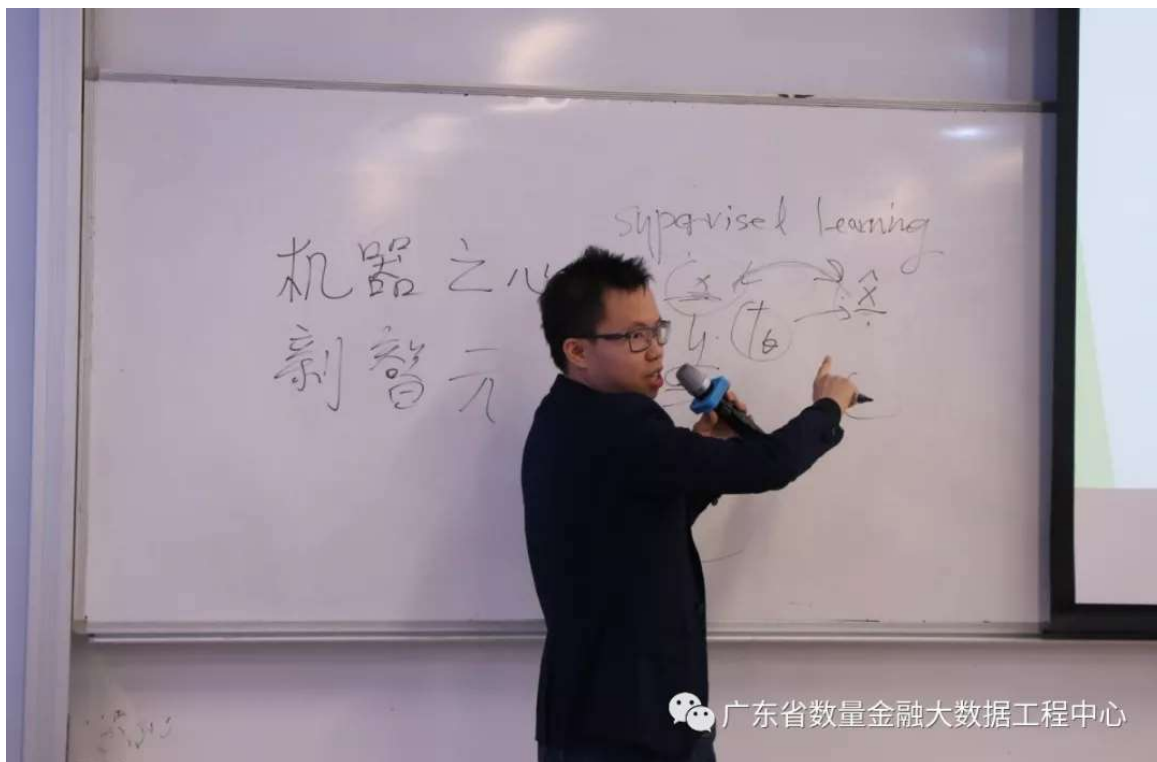 机器之心
supervised learning
x
x̂
y. fθ
新智元
广东省数量金融大数据工程中心